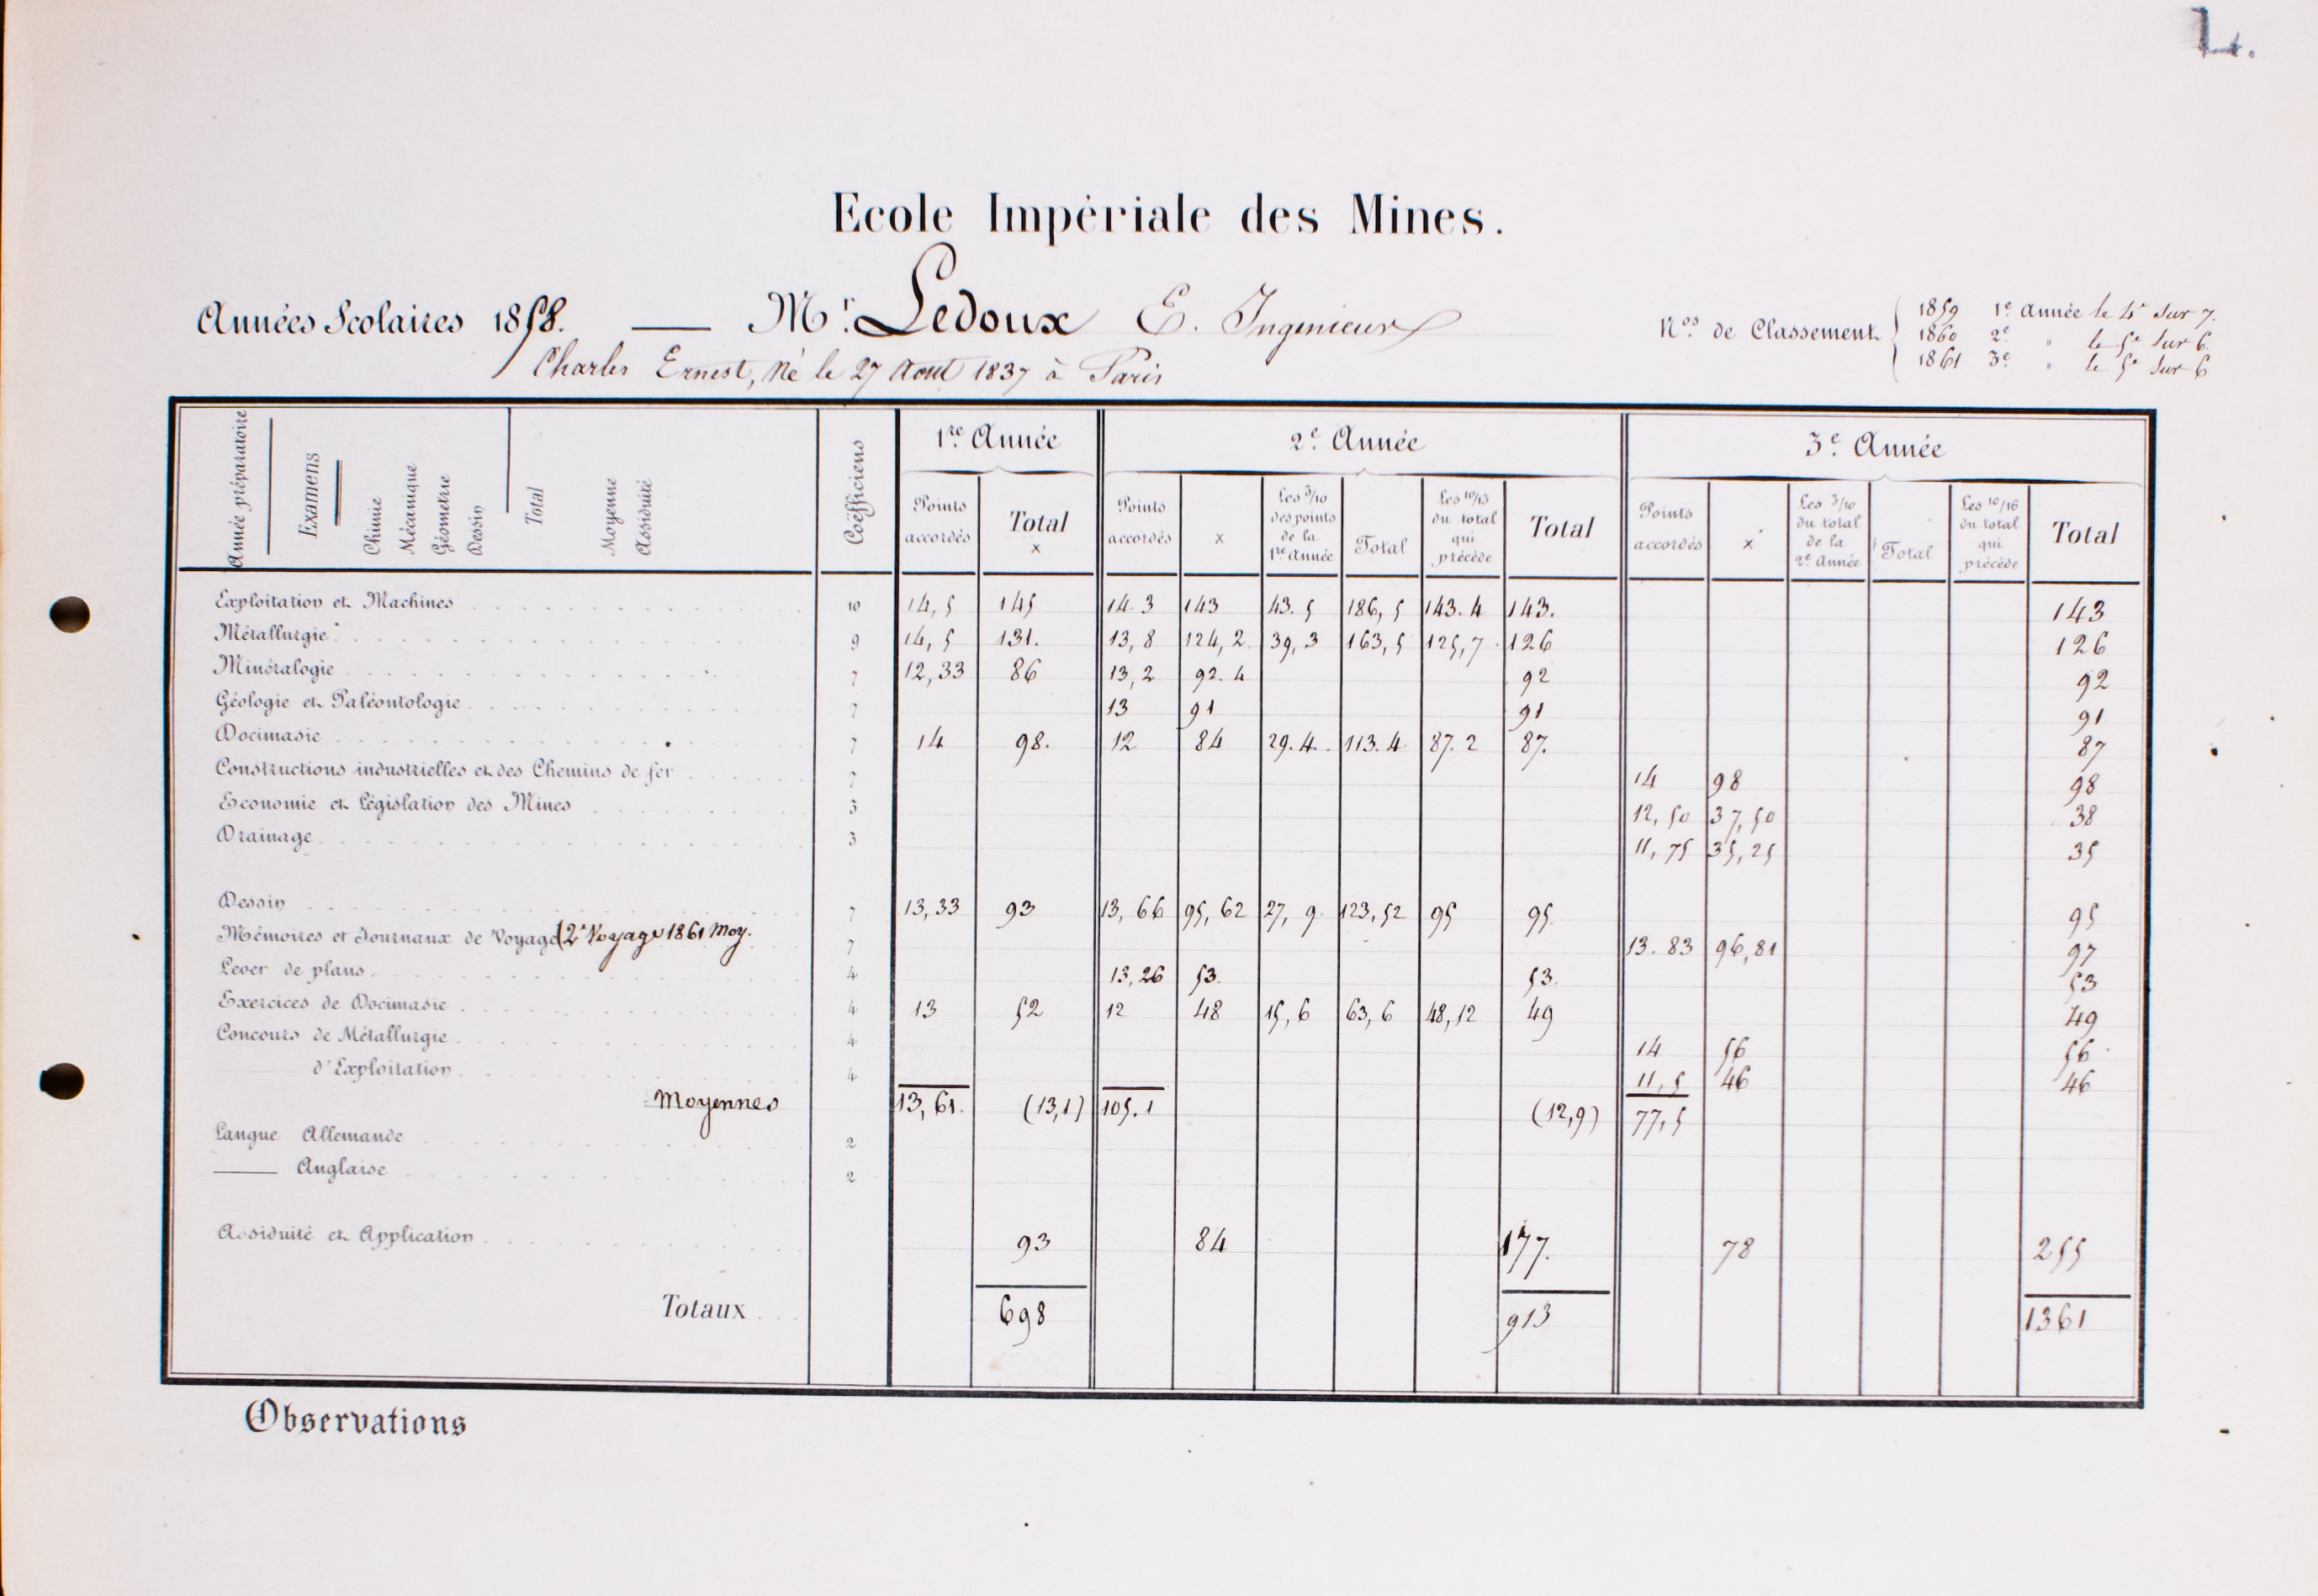 L.
Ecole Impériale des Mines.
Années Scolaires 1858. — Mr. Ledoux E. Ingenieur
Charles Ernest, Né le 27 Aout 1837 à Paris
Nos. de Classement
1859 1e année le 4e sur 7.
1860 2e " le 5e sur 6.
1861 3e " le 5e sur 6
Année préparatoire
Examens
Chimie
Mécanique
Géométrie
Dessin
Total
Moyenne
Assiduité
Coëfficiens
1re Année
Points accordés
Total x
2e Année
Points accordés
x
Les 3/10 des points de la 1re Année
Total
Les 10/13 du total qui précède
Total
3e Année
Points accordés
x
Les 3/10 du total de la 2e Année
Total
Les 10/16 du total qui précède
Total
Exploitation et Machines 10 14,5 145 14.3 143 43.5 186,5 143.4 143. 143
Métallurgie 9 14,5 131. 13,8 124,2 39,3 163,5 125,7 126 126
Minéralogie 7 12,33 86 13,2 92.4 92 92
Géologie et Paléontologie 7 13 91 91 91
Docimasie 7 14 98. 12 84 29.4. 113.4 87.2 87. 87
Constructions industrielles et des Chemins de fer 7 14 98 98
Economie et Législation des Mines 3 12,50 37,50 38
Drainage 3 11,75 35,25 35
Dessin 7 13,33 93 13,66 95,62 27,9 123,52 95 95 95
Mémoires et Journaux de Voyage (2e Voyage 1861 Moy. 7 13.83 96,81 97
Lever de plans 4 13,26 53. 53. 53
Exercices de Docimasie 4 13 52 12 48 15,6 63,6 48,12 49 49
Concours de Métallurgie 4 14 56 56
d'Exploitation 4 11,5 46 46
Moyennes 13,61. (13,1) 105.1 (12,9) 77,5
Langue Allemande 2
—— Anglaise 2
Assiduité et Application 93 84 177. 78 255
Totaux 698 913 1361
Observations